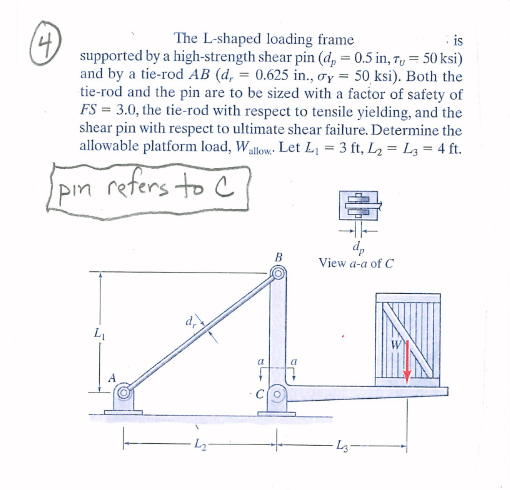 4
The L-shaped loading frame is
supported by a high-strength shear pin (dₚ = 0.5 in, τᵤ = 50 ksi)
and by a tie-rod AB (dᵣ = 0.625 in., σY = 50 ksi). Both the
tie-rod and the pin are to be sized with a factor of safety of
FS = 3.0, the tie-rod with respect to tensile yielding, and the
shear pin with respect to ultimate shear failure. Determine the
allowable platform load, Wallow. Let L₁ = 3 ft, L₂ = L₃ = 4 ft.
pin refers to C
dₚ
View a-a of C
B
dᵣ
L₁
W
a a
A
C
L₂
L₃